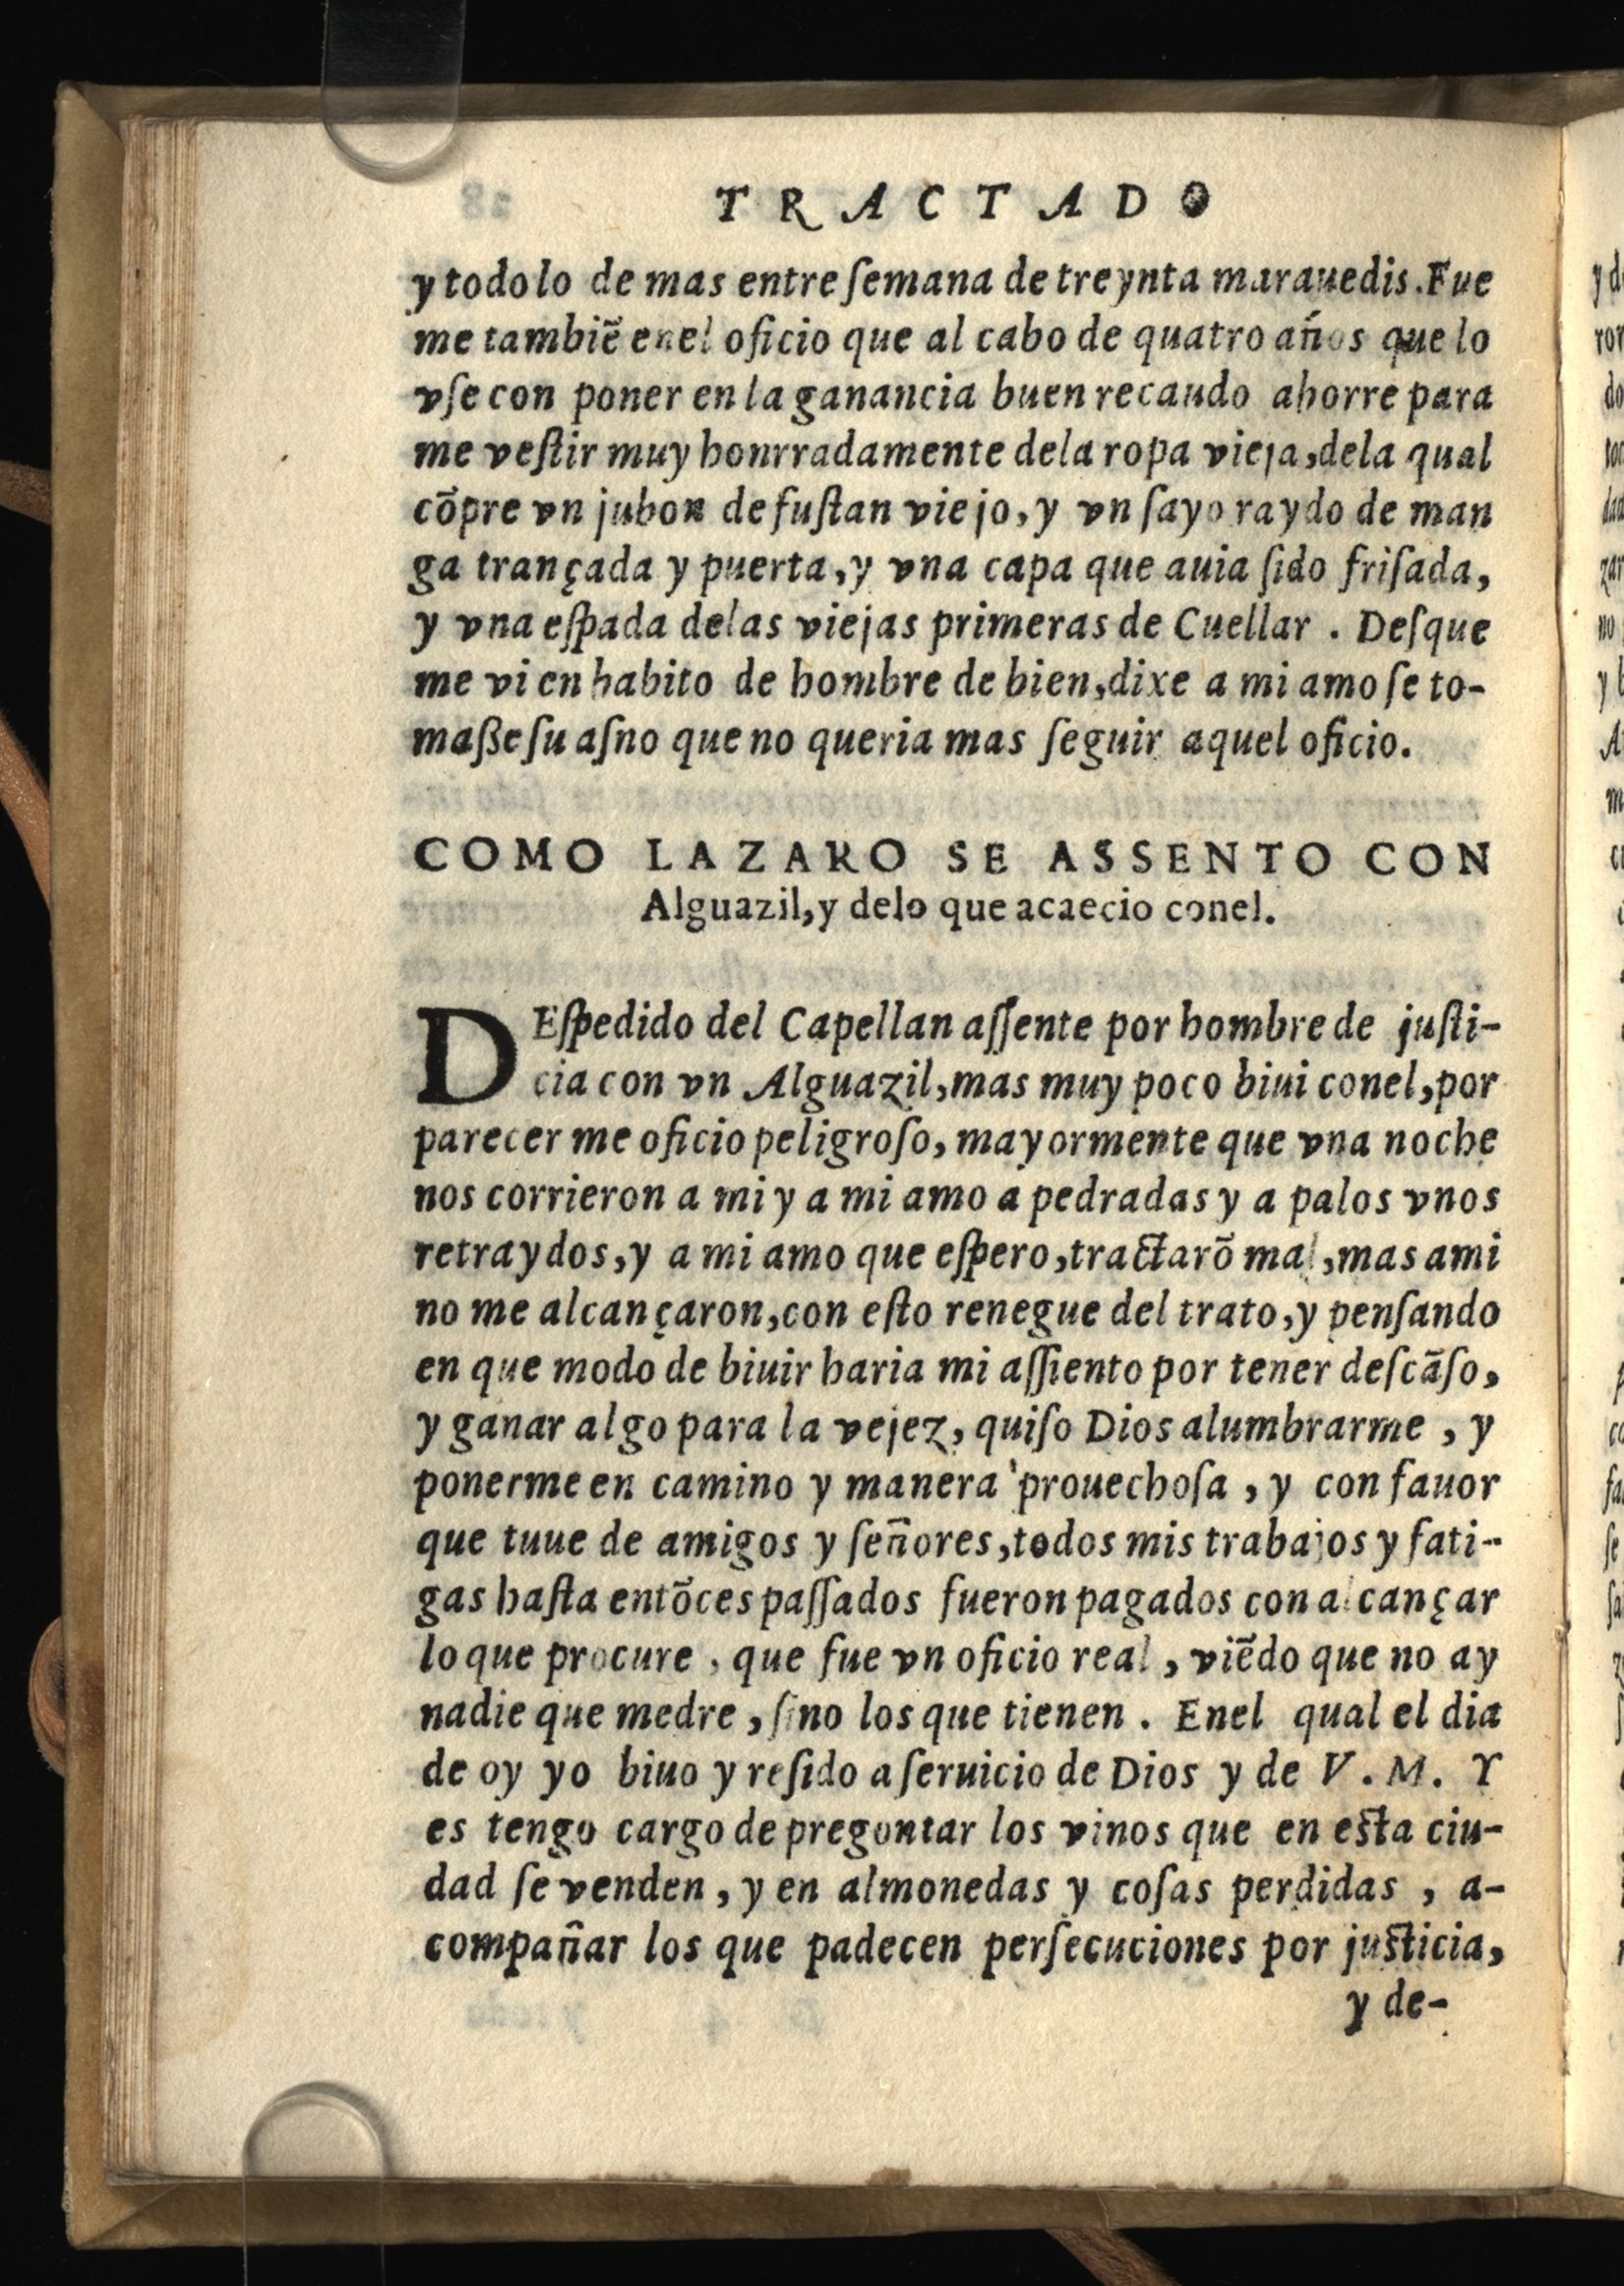 TRACTADO
y todo lo de mas entre ſemana de treynta marauedis. Fue
me tambiẽ enel oficio que al cabo de quatro años que lo
vſe con poner en la ganancia buen recaudo ahorre para
me veſtir muy honrradamente dela ropa vieja, dela qual
cõpre vn jubon de fuſtan viejo, y vn ſayo raydo de man
ga trançada y puerta, y vna capa que auia ſido friſada,
y vna eſpada delas viejas primeras de Cuellar. Deſque
me vi en habito de hombre de bien, dixe a mi amo ſe to-
maße ſu aſno que no queria mas ſeguir aquel oficio.
COMO LAZARO SE ASSENTO CON
Alguazil, y delo que acaecio conel.
DEſpedido del Capellan aſſente por hombre de juſti-
cia con vn Alguazil, mas muy poco biui conel, por
parecer me oficio peligroſo, mayormente que vna noche
nos corrieron a mi y a mi amo a pedradas y a palos vnos
retraydos, y a mi amo que eſpero, tractarõ mal, mas ami
no me alcançaron, con eſto renegue del trato, y penſando
en que modo de biuir haria mi aſſiento por tener deſcãſo,
y ganar algo para la vejez, quiſo Dios alumbrarme, y
ponerme en camino y manera prouechoſa, y con fauor
que tuue de amigos y ſeñores, todos mis trabajos y fati-
gas haſta entõces paſſados fueron pagados con alcançar
lo que procure, que fue vn oficio real, viẽdo que no ay
nadie que medre, ſino los que tienen. Enel qual el dia
de oy yo biuo y reſido a ſeruicio de Dios y de V. M. Y
es tengo cargo de pregontar los vinos que en eſta ciu-
dad ſe venden, y en almonedas y coſas perdidas, a-
compañar los que padecen perſecuciones por juſticia,
y de-